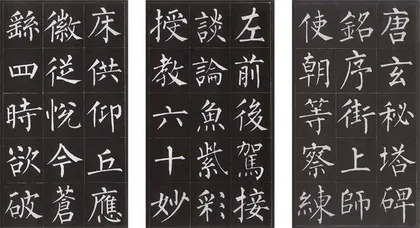 唐玄秘塔碑
銘序街上師
使朝等察練
左前後駕接
談論魚紫彩
授教六十妙
床供仰丘應
徽従悅今蒼
繇四時欲破